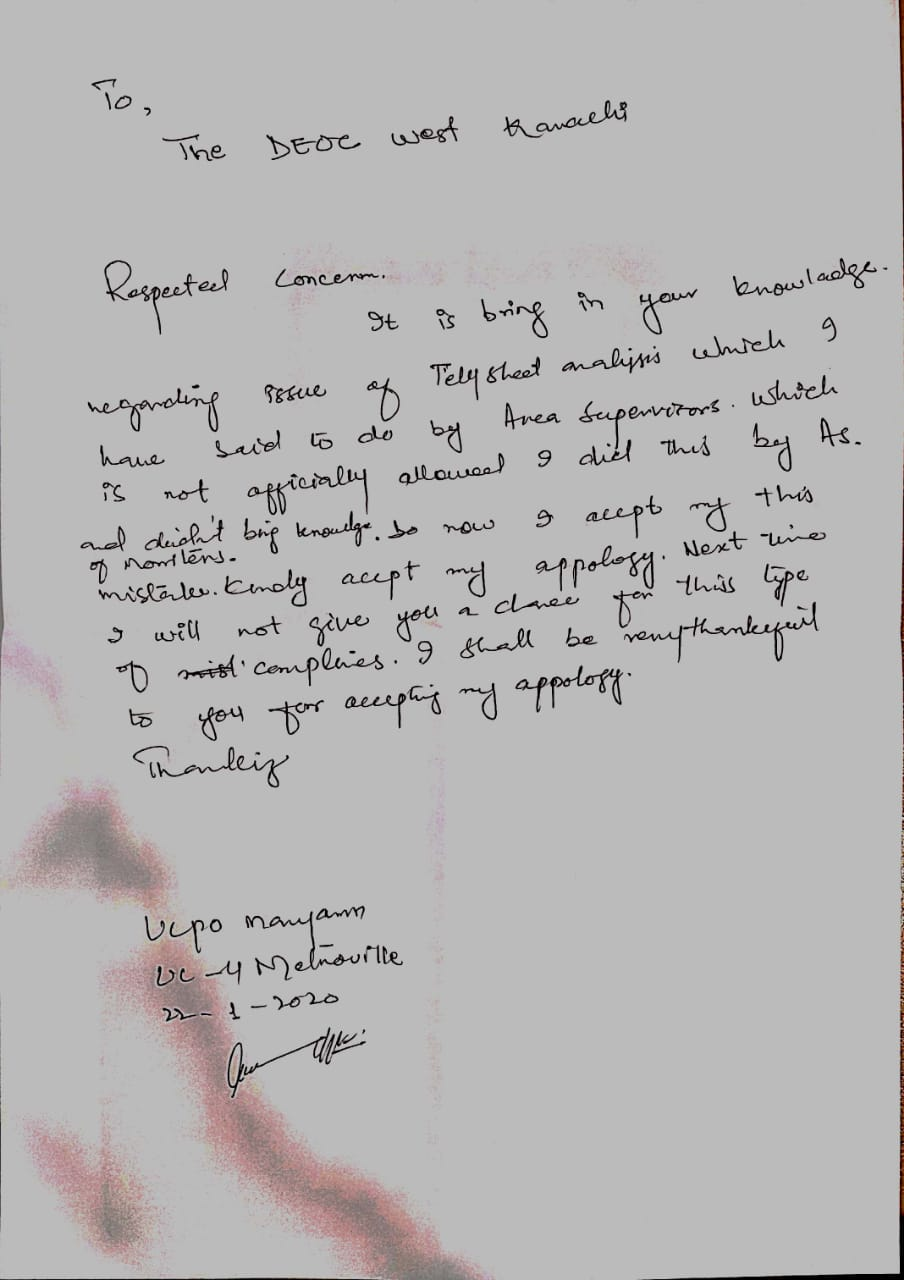 To,
The DEOC West Karachi
Respected Concern.
It is bring in your knowladge.
regarding issue of Telysheet analysis which I
have said to do by Area Supervizors. which
is not officially allowed I did this by As.
and didn't brig knowldge. So now I acept my this
of Moniters.
mistake. Kindly acept my appology. Next time
I will not give you a chance for this type
of complines. I shall be very thankefull
to you for accepting my appology.
Thanks
UCPO Maryam
UC-4 Metroville
22-1-2020